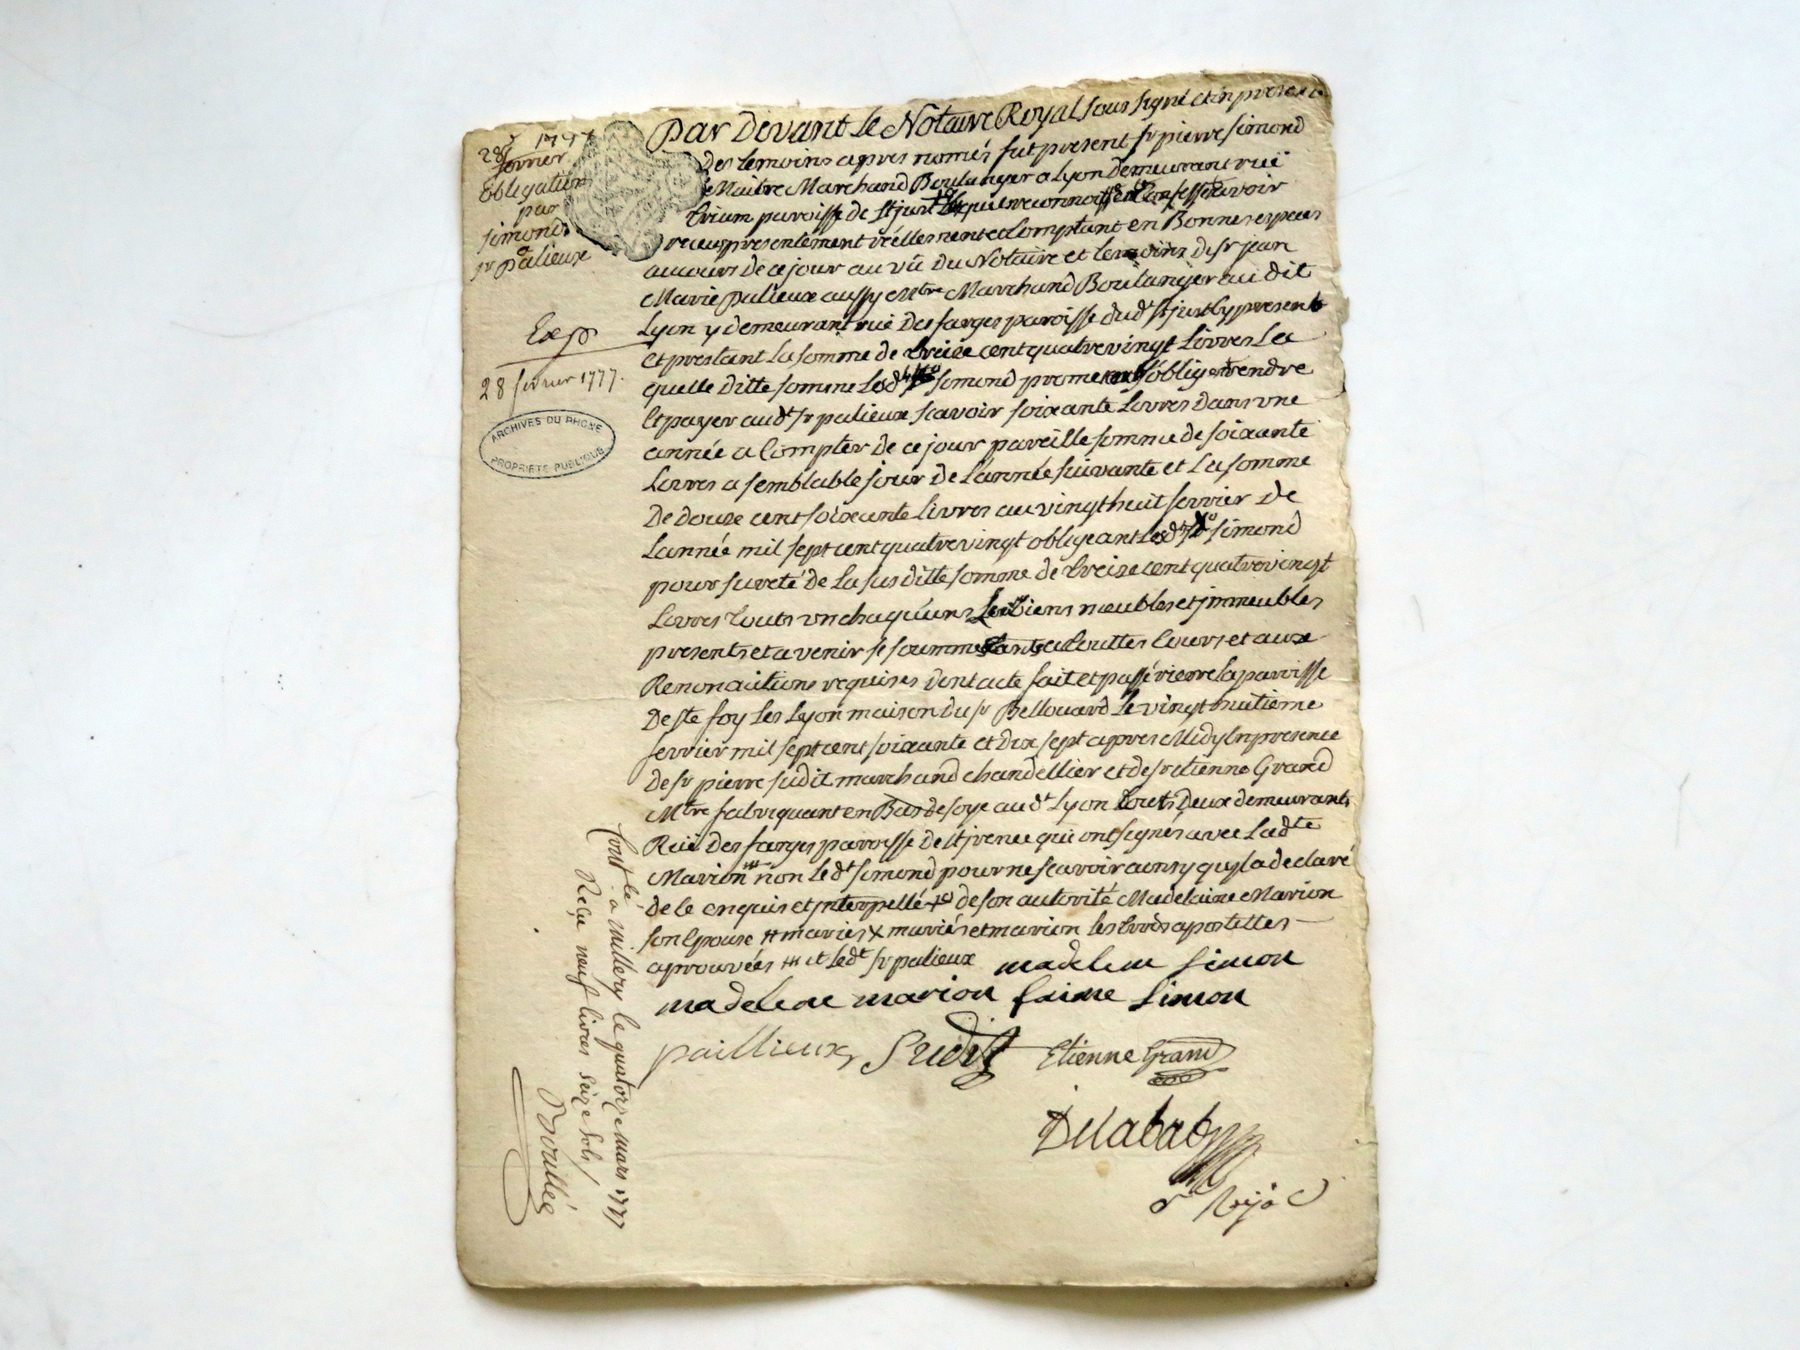 28 fevrier 1777
Obligation
par
simond
sr palieux
Exp
28 fevrier 1777.
ARCHIVES DU RHONE
PROPRIETE PUBLIQUE
Par Devant Le Notaire Royal sous signé et en presence
Des temoins apres només fut present sr pierre simond
Maitre Marchand Boulanger a Lyon demeurant ruë
trium paroisse de st just reconnoit et Confesse avoir
receu presentement réellement et Comptant en Bonnes especes
au cours de ce jour au vû Du Notaire et temoins de sr jean
Marie palieux aussy Mtre Marchand Boulanger au dit
Lyon y demeurant ruë Des farges paroisse dud st just Cy present
et prestant La somme de treize cent quatre vingt Livres La
quelle Ditte somme Led simond promet s'oblige rendre
Et payer aud sr palieux scavoir soixante Livres Dans une
année a Compter de ce jour pareille somme de soixante
Livres a semblable jour de L'année suivante et La somme
De douze cent soixante livres au vingt huit fevrier De
L'année mil sept cent quatre vingt obligeant Led simond
pour sureté de La sus ditte somme de treize cent quatre vingt
Livres touts un chaq'uns Biens meubles et immeubles
presents et avenir se soumettant a touttes Cours et aux
Renonciations requises Dont acte fait et passé riere la paroisse
De ste foy Les Lyon maison du sr Bellouard Le vingt huitieme
fevrier mil sept cent soixante et Dix sept apres Midy En presence
de sr pierre sudit marchand chandellier et de sr etienne Grand
Mtre fabriquant en Bas de soye aud Lyon touts Deux demeurants
Ruë Des farges paroisse De st irenée qui ont signés avec Ladte
Marion non le dt simond pour ne scavoir ainsy qu'il a declaré
de le enquis et interpellé de son autorité Madelaine Marion
son Epouse # mariés x mariés et marion les trois apostilles
aprouvées et led sr palieux madelene simon
madelene marion faime simon
paillieux Sudit Etienne Grand
Delabat
Controlé a millery le quatorze mars 1777
Reçu neuf livres seize sols